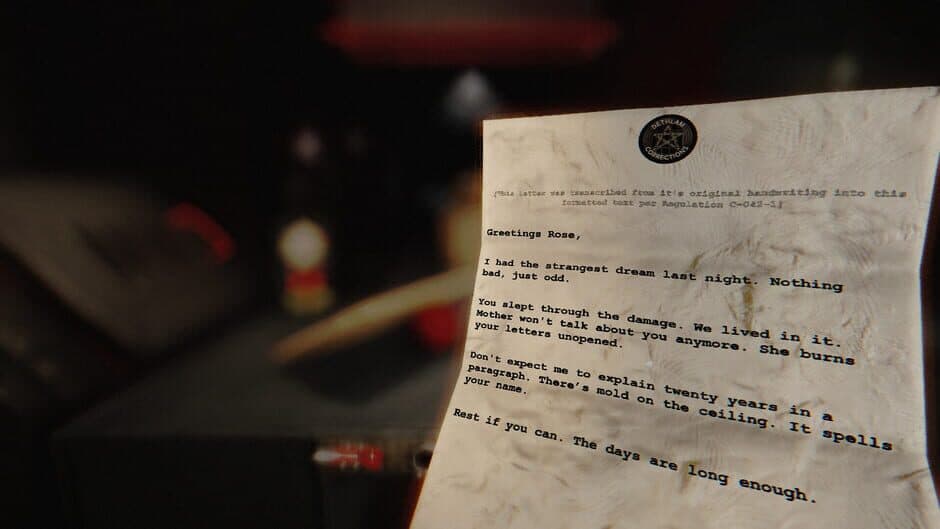 DETHLAM
CORRECTIONS
[This letter was transcribed from it's original handwriting into this
formatted text per Regulation
Greetings Rose,
I had the strangest dream last night. Nothing
bad, just odd.
You slept through the damage. We lived in it.
Mother won't talk about you anymore. She burns
your letters unopened.
Don't expect me to explain twenty years in a
paragraph. There's mold on the ceiling. It spells
your name.
Rest if you can. The days are long enough.